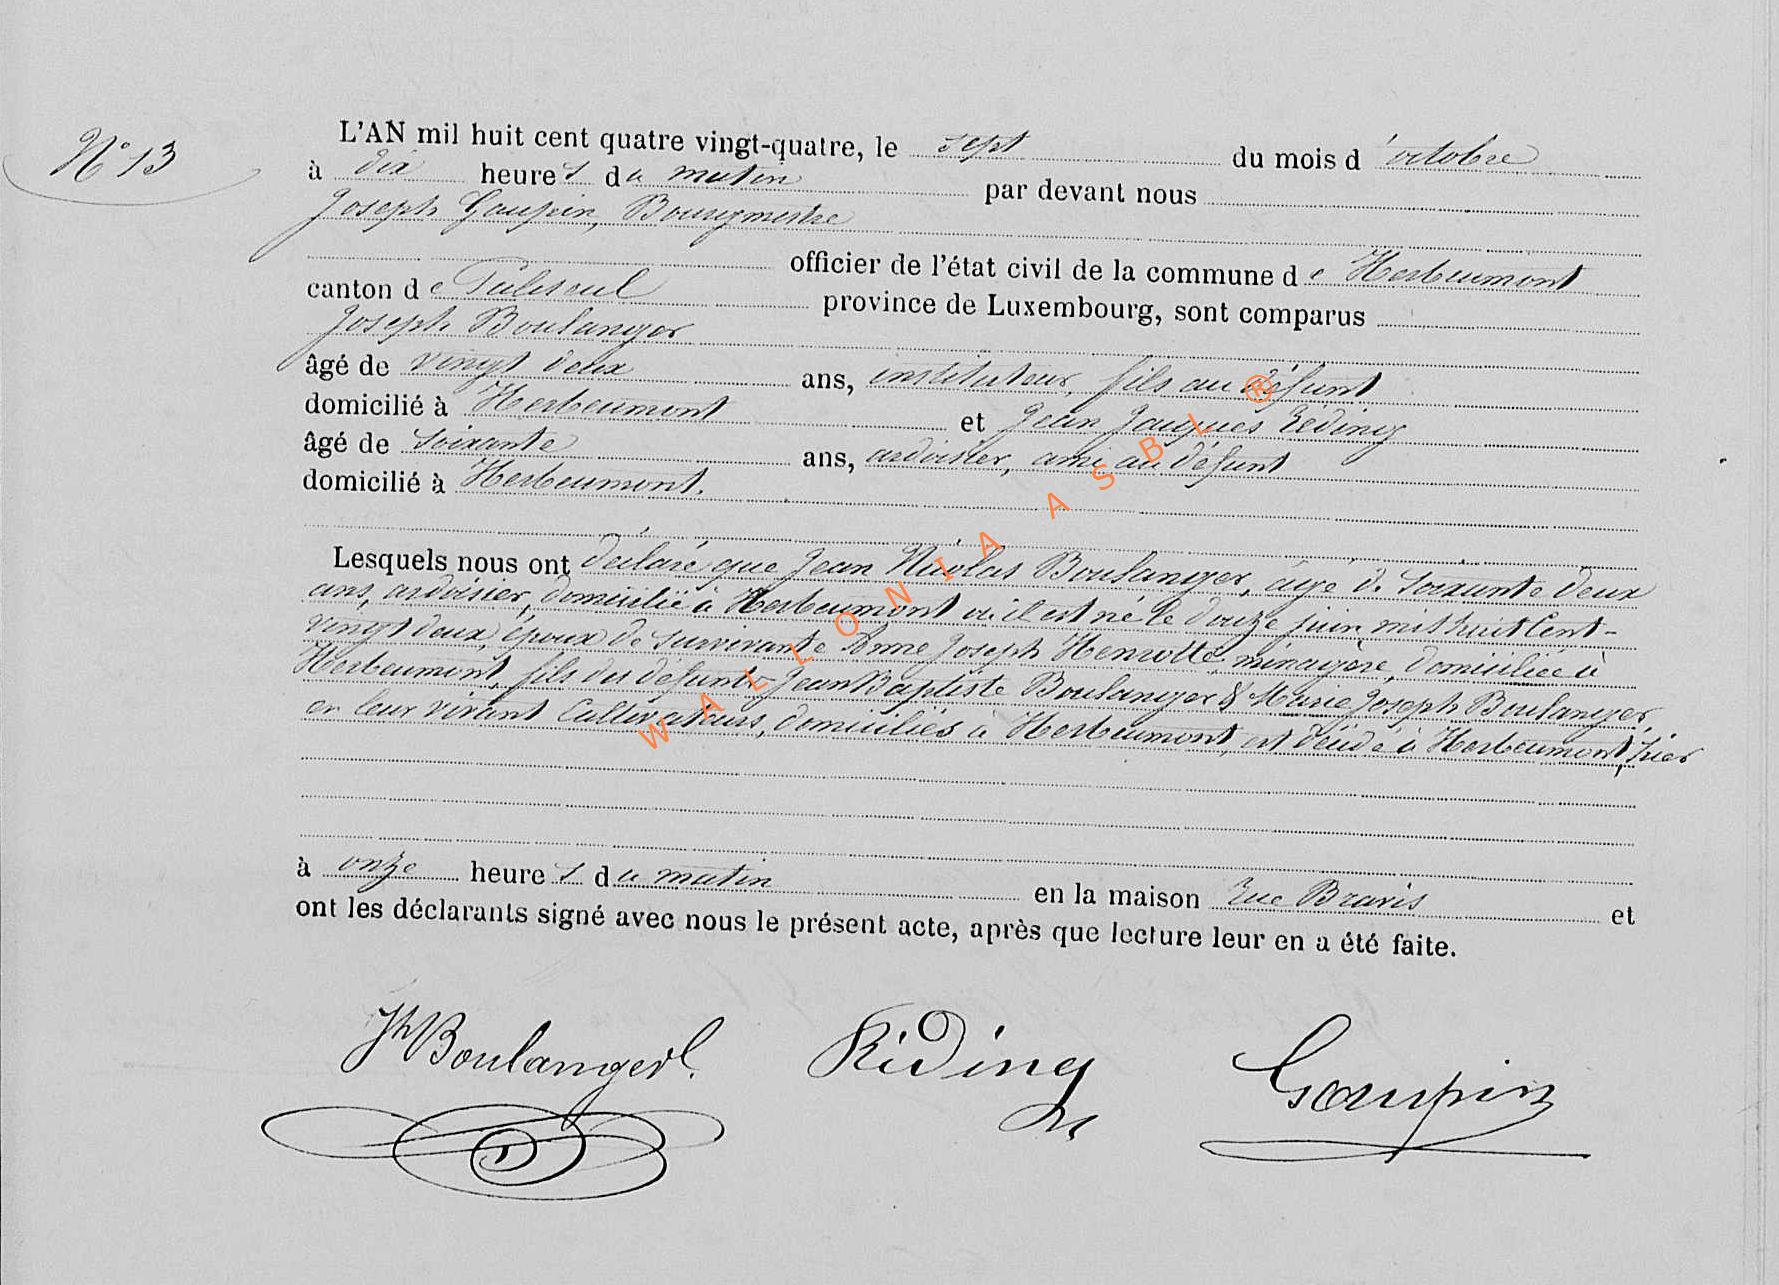 N° 13
L'AN mil huit cent quatre vingt-quatre, le sept du mois d'octobre
à dix heures du matin par devant nous
Joseph Goupin, Bourgmestre
officier de l'état civil de la commune de Herbeumont
canton de Paliseul province de Luxembourg, sont comparus
Joseph Boulanger
âgé de vingt deux ans, instituteur, fils au défunt
domicilié à Herbeumont et Jean Jacques Réding
âgé de soixante ans, ardoisier, ami au défunt
domicilié à Herbeumont.
Lesquels nous ont déclaré que Jean Nicolas Boulanger, âgé de soixante deux
ans, ardoisier, domicilié à Herbeumont où il est né le douze juin mil huit Cent-
vingt deux, époux de survivante Anne Joseph Henrotte, ménagère, domiciliée à
Herbeumont, fils des défunts Jean Baptiste Boulanger & Marie Joseph Boulanger,
en leur vivant Cultivateurs, domiciliés à Herbeumont, est décédé à Herbeumont, hier
à onze heures du matin en la maison rue Bravis et
ont les déclarants signé avec nous le présent acte, après que lecture leur en a été faite.
Jh Boulanger Riding Goupin
WALLONIA ASBL ®